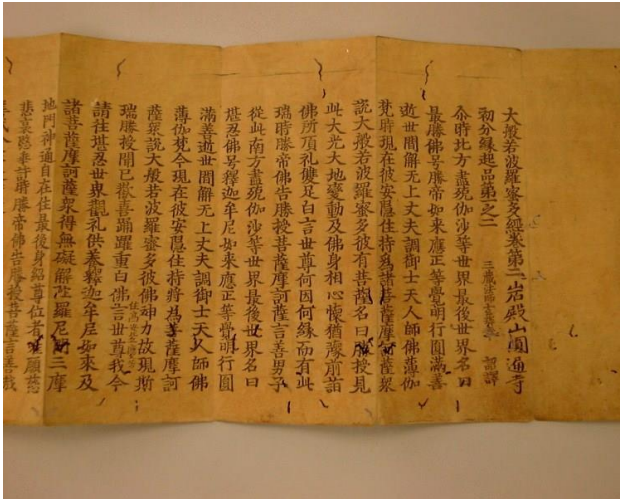 大般若波羅蜜多經卷第二 岩殿山圓通寺
初分緣起品第之二 三藏法師玄奘奉 詔譯
尒時北方盡殑伽沙等世界最後世界名曰
最勝佛号勝帝如來應正等覺明行圓滿善
逝世間解无上丈夫調御士天人師佛薄伽
梵時現在彼安隱住持爲諸菩薩摩訶薩衆
說大般若波羅蜜多彼有菩薩名曰勝授見
此大光大地變動及佛身相心懷猶豫前詣
佛所頂礼雙足白言世尊何因何緣而有此
瑞時勝帝佛告勝授菩薩摩訶薩言善男子
從此南方盡殑伽沙等世界最後世界名曰
堪忍佛号釋迦牟尼如來應正等覺明行圓
滿善逝世間解无上丈夫調御士天人師佛
薄伽梵今現在彼安隱住持將爲菩薩摩訶
薩衆說大般若波羅蜜多彼佛神力故現斯
瑞勝授聞已歡喜踊躍重白佛言世尊我今
請往堪忍世界觀礼供養釋迦牟尼如來及
諸菩薩摩訶薩衆得無礙解陀羅尼門三摩
地門神通自在住最後身紹尊位者唯願慈
悲哀愍垂許時勝帝佛告勝授菩薩言善哉